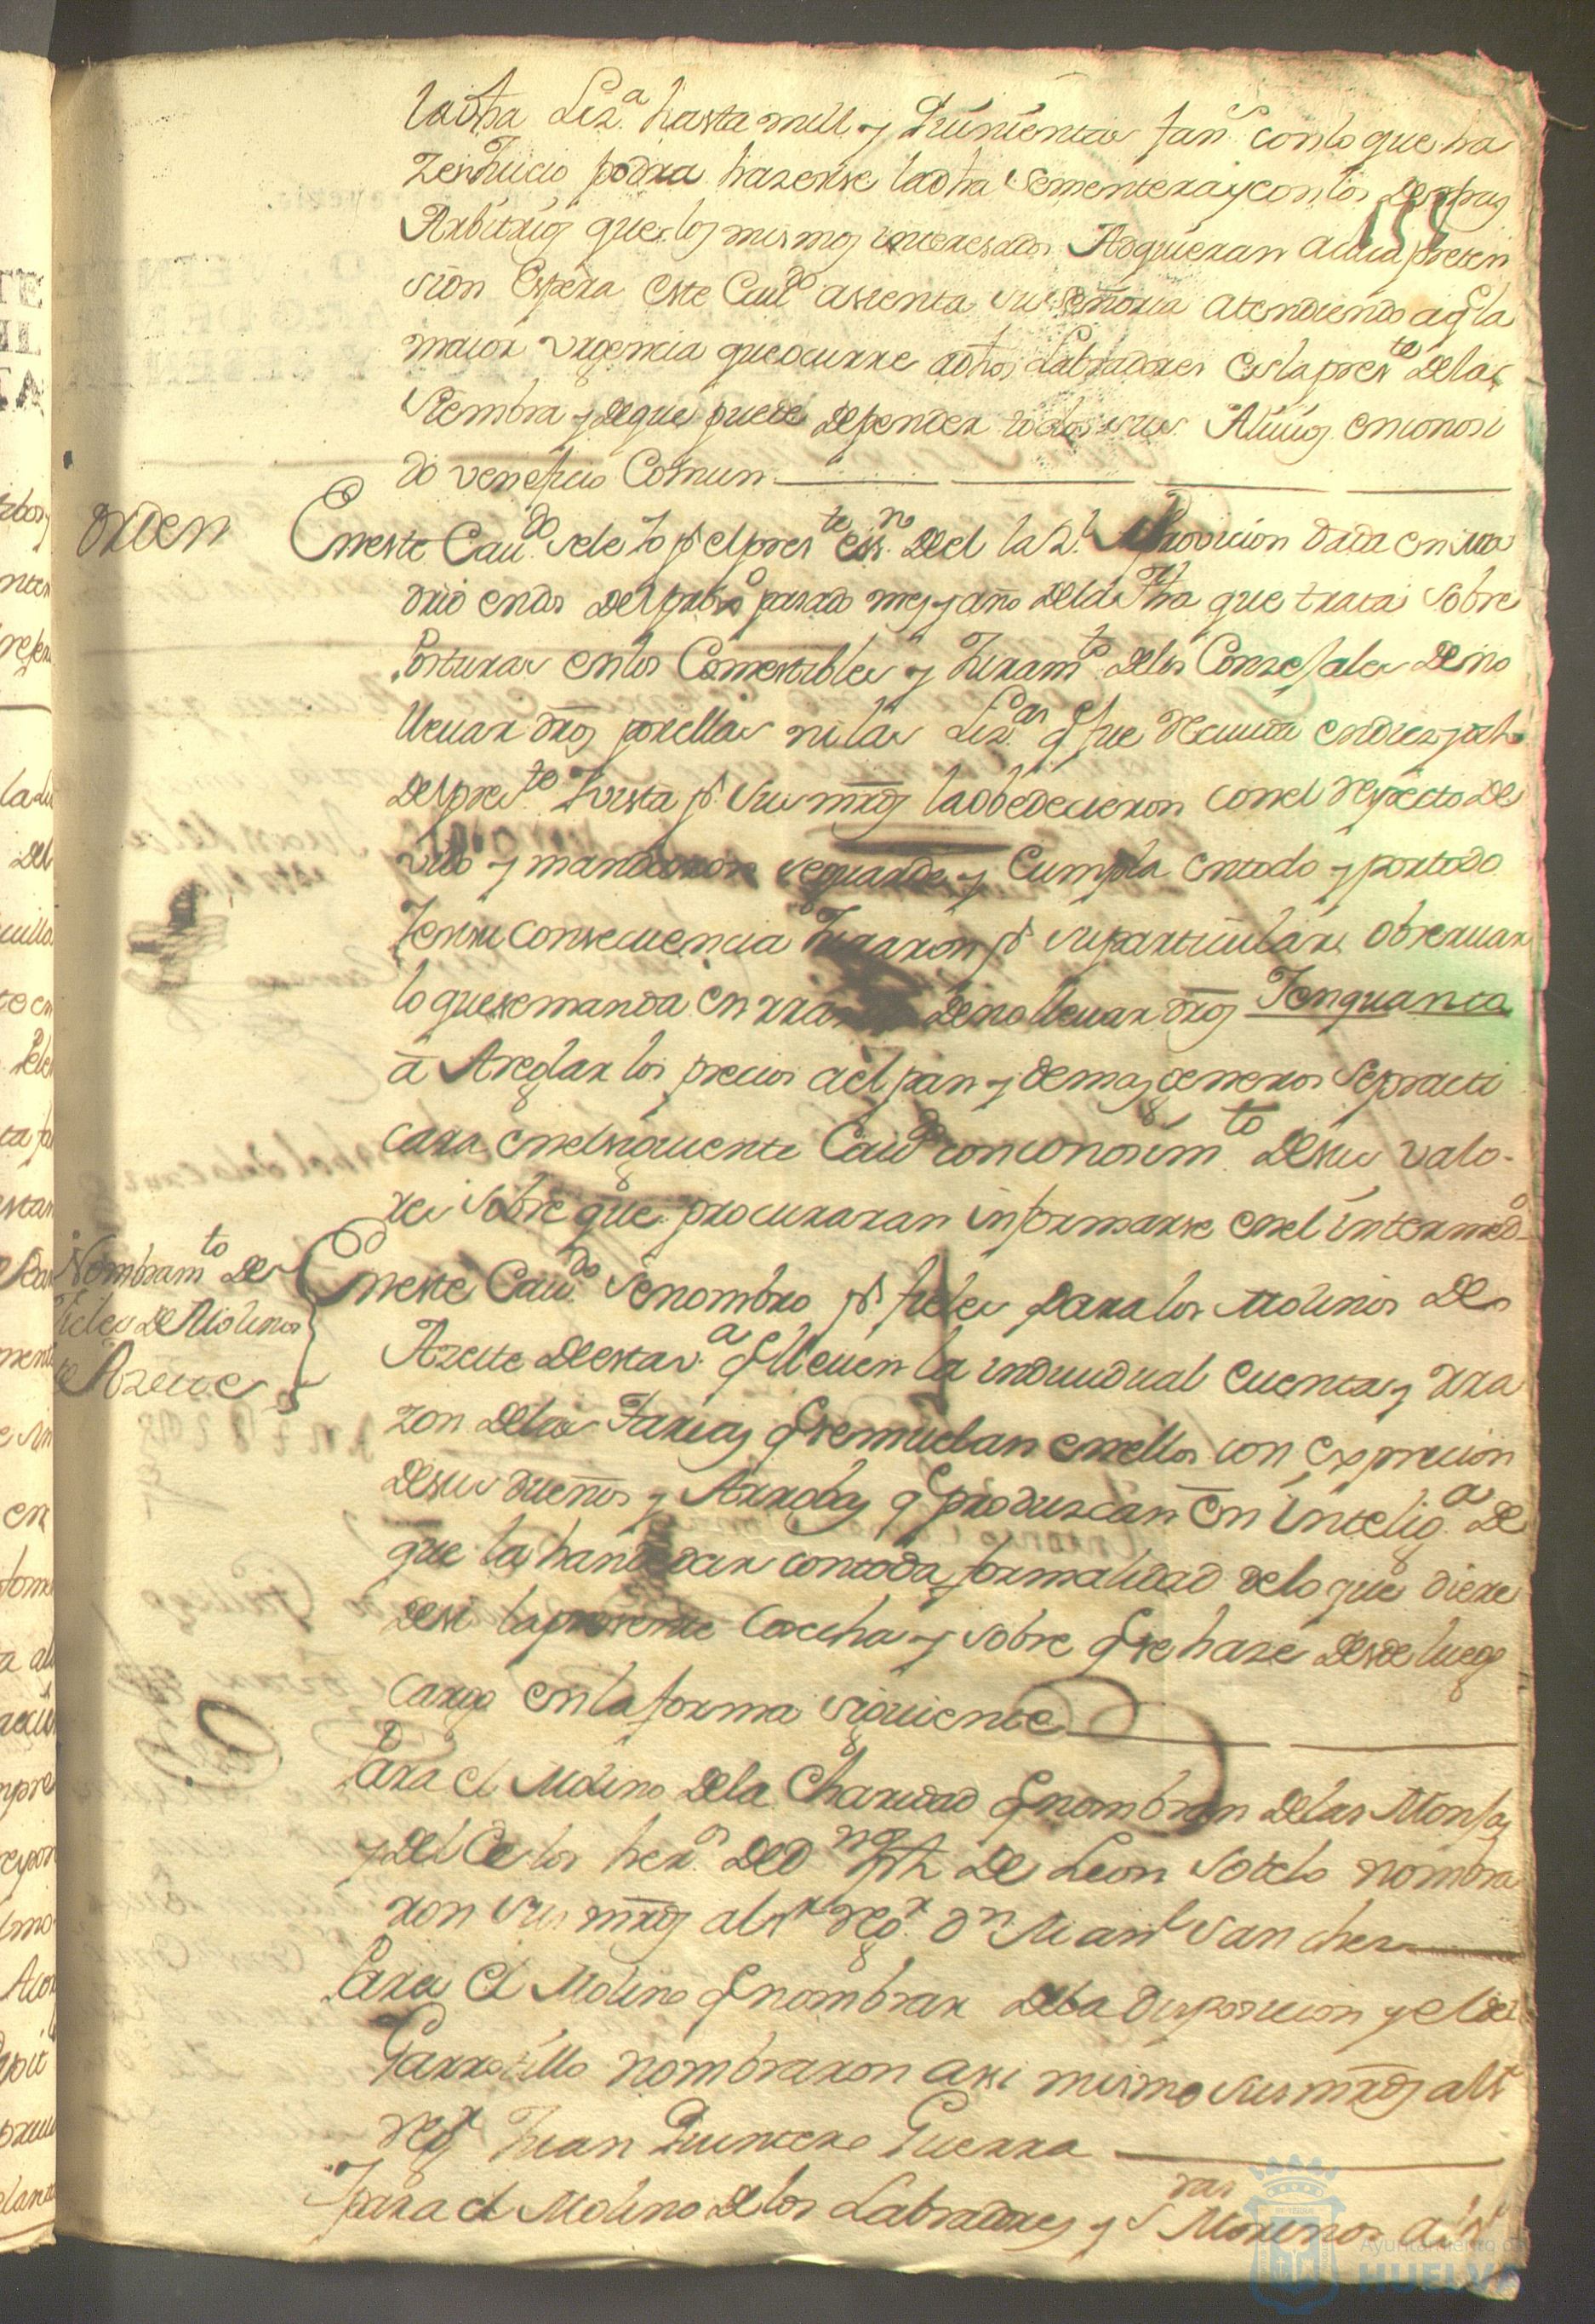 la dha Liz.ª hasta mill y Quinientas fan.s con lo que ha
Juicio podra hazerse la dha sementera y con los demas
Arbitrios que los mismos interesados Adquieran a cuia preten
sion Espera este Cau.do assenta su señoria atendiendo a q.e la
maior urgencia que ocurre a dhos Labradores es la pres.te de la
Siembra y de que puede depender todos sus Aliuios en conosi
do veneficio Comun
Orden
En este Cau.do se leio p.r el pres.te ess.no de el la R.l Provicion dada en Ma
drid en dos del prox.o pasado mes y año de la fha que trata sobre
Posturas en los Comestibles y Juram.to de los Consejales de no
lleuar dros por ellas ni las Liz.as q.e fue Reciuida en diez y ocho
del pres.te Y vista p.r sus mrds la obedecieron con el respecto de
uido y mandaron se guarde y Cumpla en todo y por todo
Y en su consecuencia Juraron p.r su particular obseruar
lo que se manda en rrazon de no lleuar dros Y en quanto
a Areglar los precios a el pan y demas generos se practi
cara en el siguiente Cau.do con conosim.to de sus valo-
res sobre que procuraran informarse en el intermed.o
Nombram.to de
Fieles de Molinos
de Azeite
En este Cau.do se nombro p.r fieles para los Molinos de
Azeite de esta v.ª q.e lleuen la indiuidual cuenta y rra
zon de las Tareas q.e se muelan en ellos con exprecion
de sus dueños y Arrobas q.e produscan en intelig.ª de
que la han de dar con toda formalidad de lo que diere
de si la presente Cosecha y sobre q.e se haze desde luego
cargo en la forma siguiente
Para el Molino de la Charidad q.e nombran de las Monjas
y del de los her.os de D.n de Leon Sotelo nombra
ron sus mrds al s.r reg.r D.n Man.l Sanchez
Para el Molino q.e nombran de la Disposicion y el del
Garrotillo nombraron assi mismo sus mrds al s.r
reg.r Juan Quintero Guerra
Y para el Molino de los Labradores y Morenos a s.r
Ayuntamiento de
HUELVA